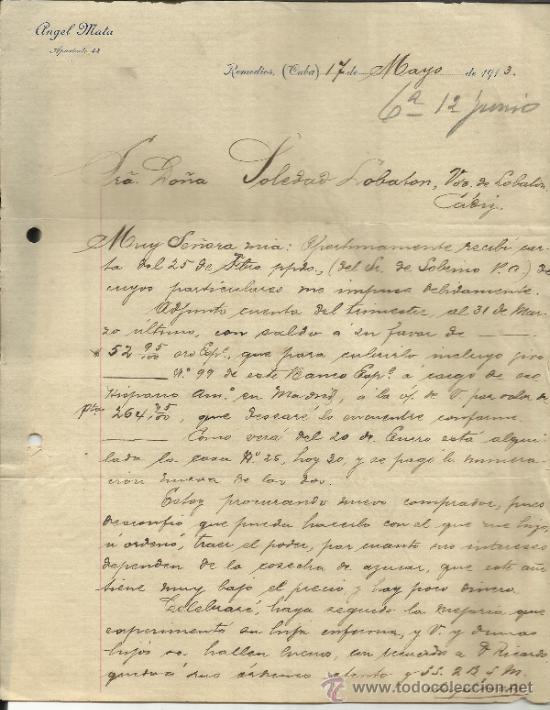 Angel Mata
Apartado 44
Remedios, (Cuba) 17 de Mayo de 1913.
6a 12 junio
Sra. Doña Soledad Lobaton, Vda. de Lobaton
Cádiz.
Muy Señora mia: Oportunamente recibí car-
ta del 25 de Fbro ppdo, (del Sr. de Sobrino P.A) de
cuyos particulares me impuse debidamente.
Adjunto cuenta del trimestre, al 31 de Mar-
zo último, con saldo á su favor de
$ 52 95/100 oro Espl, que para cubrirlo incluyo giro
Nº 99 de este Banco Espl á cargo de
Hispano Amº en Madrid, a la o/. de V. por valor de
Ptas 264,75/100, que desearé lo encuentre conforme
Como verá del 20 de Enero está alqui-
lada la casa Nº 26, hoy 30, y se pagó la numera-
ción nueva de las dos.
Estoy procurando nuevo comprador, pues
desconfio que pueda hacerlo con el que me hizo,
ú ordenó, traer el poder, por cuanto sus intereses
dependen de la cosecha de azucar, que este año
tiene muy bajo el precio y hay poco dinero.
Celebraré, haya seguido la mejoria que
experimento su hija enferma, y V. y demas
hijos se hallen buenos, con recuerdo a D Ricardo
queda á sus órdenes atento y S.S. Q B S M.
todocoleccion.net